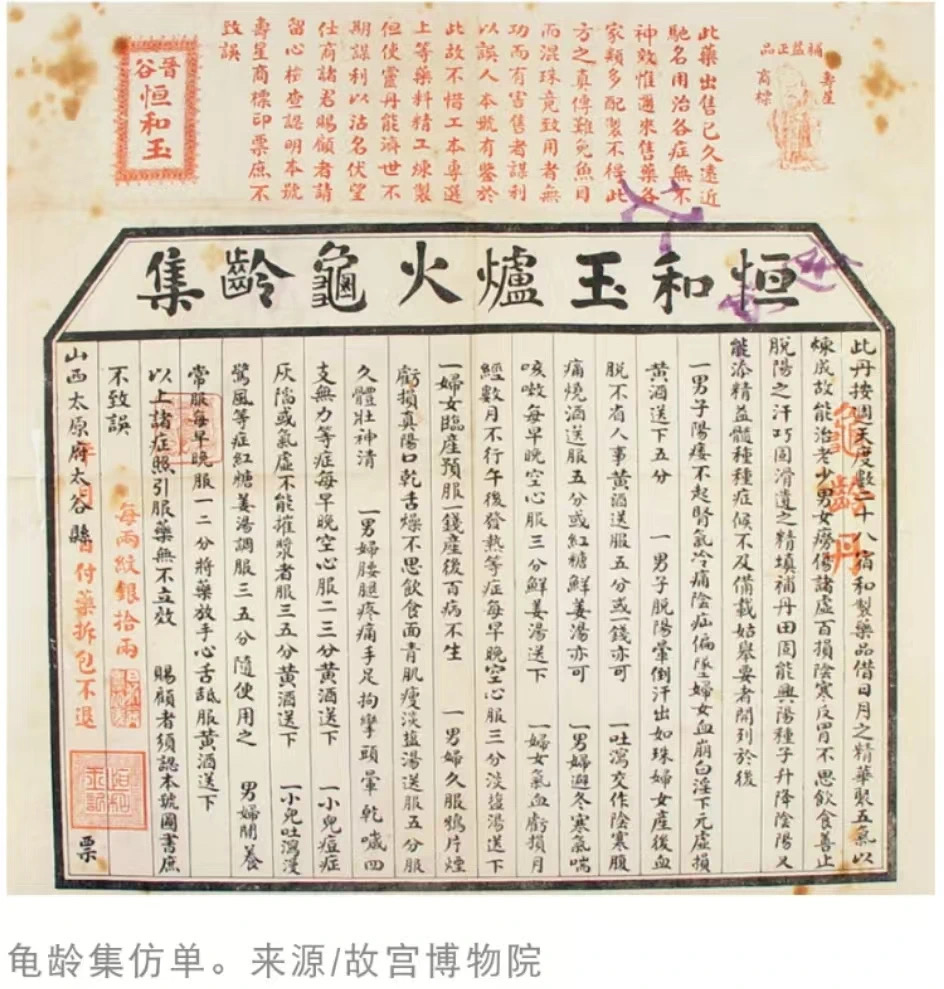 補益正品
壽星
商標
此藥出售已久遠近
馳名用治各症無不
神效惟邇來售藥各
家類多配製不得此
方之真傳難免魚目
而混珠竟致用者無
功而有害售者謀利
以誤人本號有鑒於
此故不惜工本專選
上等藥料精工煉製
但使靈丹能濟世不
期謀利以沽名伏望
仕商諸君賜顧者請
留心檢查認明本號
壽星商標印票庶不
致誤
晉谷
恒和玉
恒和玉爐火龜齡集
此丹按週天度數二十八宿和製藥品借日月之精華聚五氣以
煉成故能治老少男女癆傷諸虛百損陰寒反胃不思飲食善止
脫陽之汗巧固滑遺之精填補丹田固能興陽種子升降陰陽又
能添精益髓種種症候不及備載姑舉要者開列於後
一男子陽痿不起腎氣冷痛陰疝偏墜婦女血崩白淫下元虛損
黃酒送下五分 一男子脫陽暈倒汗出如珠婦女產後血
脫不省人事黃酒送服五分或一錢亦可 一吐瀉交作陰寒腹
痛燒酒送服五分或紅糖鮮姜湯亦可 一男婦遇冬寒氣喘
咳嗽每早晚空心服三分鮮姜湯送下 一婦女氣血虧損月
經數月不行午後發熱等症每早晚空心服三分淡鹽湯送下
一婦女臨產預服一錢產後百病不生 一男婦久服鴉片煙
虧損真陽口乾舌燥不思飲食面青肌瘦淡鹽湯送服五分服
久體壯神清 一男婦腰腿疼痛手足拘攣頭暈乾嘁四
支無力等症每早晚空心服二三分黃酒送下 一小兒痘症
灰陷或氣虛不能摧漿者服三五分黃酒送下 一小兒吐瀉漫
驚風等症紅糖姜湯調服三五分隨使用之 男婦閒養
常服每早晚服一二分將藥放手心舌舐服黃酒送下
以上諸症照引服藥無不立效 賜顧者須認本號圖書庶
不致誤
山西太原府太谷縣 票
龜齡丹
每兩紋銀拾兩
年月日付藥拆包不退
恒和玉記
龟龄集仿单。来源/故宫博物院